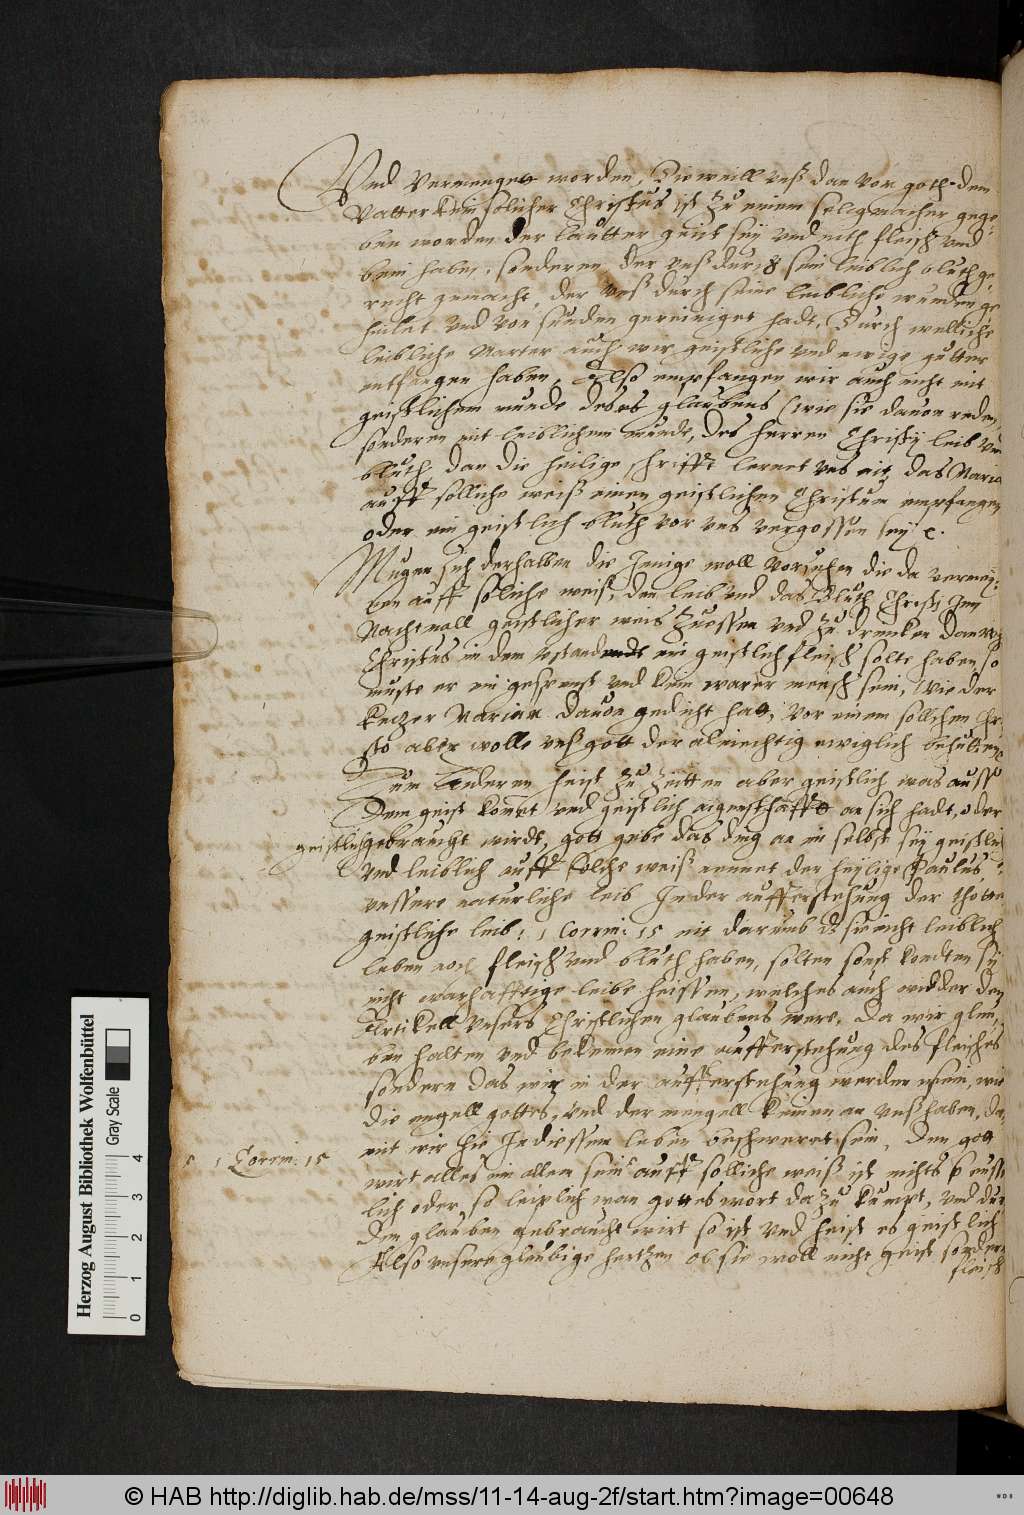 Vnd Vermenget worden, Dieweill vnß dan von goth dem
Vatter kein solicher Christus ist Zu einem seligmacher gege-
ben worden der lautter geist sey vnd nith fleisch vnd
bein habe, sonderen der vnß durch sein leiblich bluth ge
recht gemacht, der vnß durch seine leibliche wunden ge
heilet vnd von sunden gereiniget hadt, Durch welliche
leibliche Marter auch wir geistliche vnd ewige gutter
entfangen haben, Also empfangen wir auch nicht mit
geistlichem munde deses glaubens (wie sie dauon reden)
sonderen mit leiblichem munde, des herren Christy leib vnd
bluth dan die heilige schrifft lernet vns nit das Maria
auff solliche weiß einen geistlichen Christum empfangen
oder ein geistlich bluth vor vns vergossen sey c.
Mugen sich derhalben die Jenige woll vorsehen die da vermey-
nen auff soliche weise, den leib vnd das Bluth Christi Jm
Nachtmall geistlicher weis Zu essen vnd Zu drencken Dan wo
Christus in dem ein geistlich fleisch solte haben, so
muste er ein gespenst vnd kein warer mensch sein, Wie der
ketzer Marion dauon gedicht hatt, Vor einem sollchen Chri
sto aber wolle vnß gott der almechtig ewiglich behutten
Zum Anderen heist Zu Zeitten aber geistlich was auss
Dem geist kompt vnd geistlich eigenschafft an sich hadt, oder
geistlich gebraucht wirdt, gott gebe das ding an im selbst sey geistlich
vnd leiblich auff solche weiß nennet der heylige Paulus,
vnssere naturliche leib Jn der aufferstehung der thotten
geistliche leib: 1 Corrin: 15 nit darumb d sie nicht leiblich
leben noch fleisch vnd bluth haben, solten sonst kondten sy
nicht warhafftige leibe heissen, welches auch widder den
Artickell vnsers Christlichen glaubens were, Da wir gleu-
ben halten vnd bekennen eine aufferstehung des fleisches
sondern das wir in der aufferstehung werden sein, wie
die engell gottes, vnd der mengell keinen an vnß haben, da
mit wir hie Jn diessem leben beschweret sein, Den gott
1 Corrin: 15
wirt alles in allem sein auff solliche weiß ist nichts so euss
lich oder so leiplich wan gottes wort da Zu kumpt, vnd dur
den glauben gebraucht wirt so ist vnd heist es geistlich
Also vnsere gleubige hertzen ob sie woll nicht geist sondern
fleisch
Herzog August Bibliothek Wolfenbüttel
Gray Scale
0 1 2 3 4
© HAB http://diglib.hab.de/mss/11-14-aug-2f/start.htm?image=00648